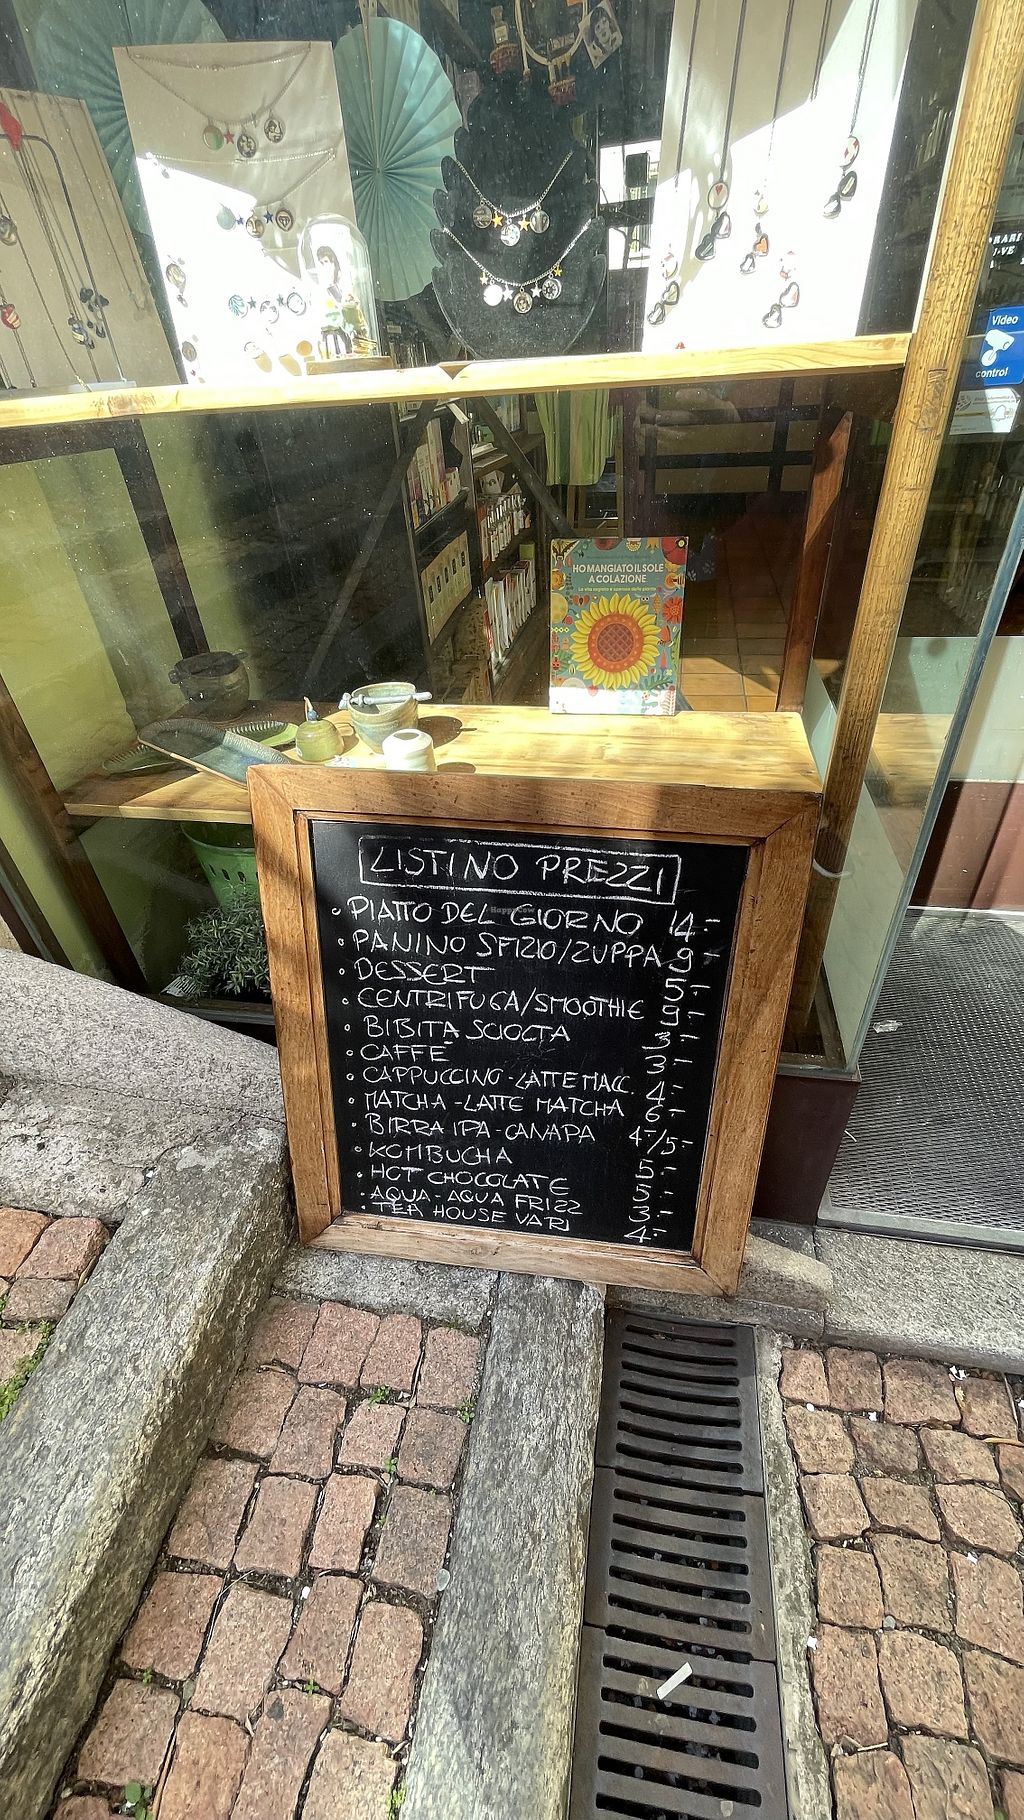 Video
control
HO MANGIATO IL SOLE
A COLAZIONE
LISTINO PREZZI
• PIATTO DEL GIORNO 14.-
• PANINO SFIZIO/ZUPPA 9.-
• DESSERT 5.-
• CENTRIFUGA/SMOOTHIE 9.-
• BIBITA SCIOLTA 3.-
• CAFFÈ 3.-
• CAPPUCCINO - LATTE MACC. 4.-
• MATCHA - LATTE MATCHA 6.-
• BIRRA IPA - CANAPA 4.-/5.-
• KOMBUCHA 5.-
• HOT CHOCOLATE 5.-
• AQUA - AQUA FRIZZ 3.-
• TEA HOUSE VARI 4.-
HappyCow